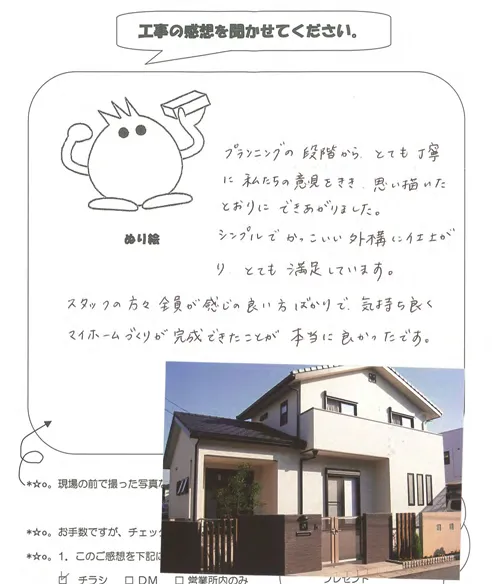 工事の感想を聞かせてください。
プランニングの段階から、とても丁寧
に私たちの意見をきき、思い描いた
とおりにできあがりました。
シンプルでかっこいい外構に仕上が
り、とても満足しています。
ぬり絵
スタッフの方々全員が感じの良い方ばかりで、気持ち良く
マイホームづくりが完成できたことが本当に良かったです。
*☆o。現場の前で撮った写真な
*☆o。お手数ですが、チェッ
*☆o。1、このご感想を下記に
☑ チラシ □ DM □ 営業所内のみ
プレゼント